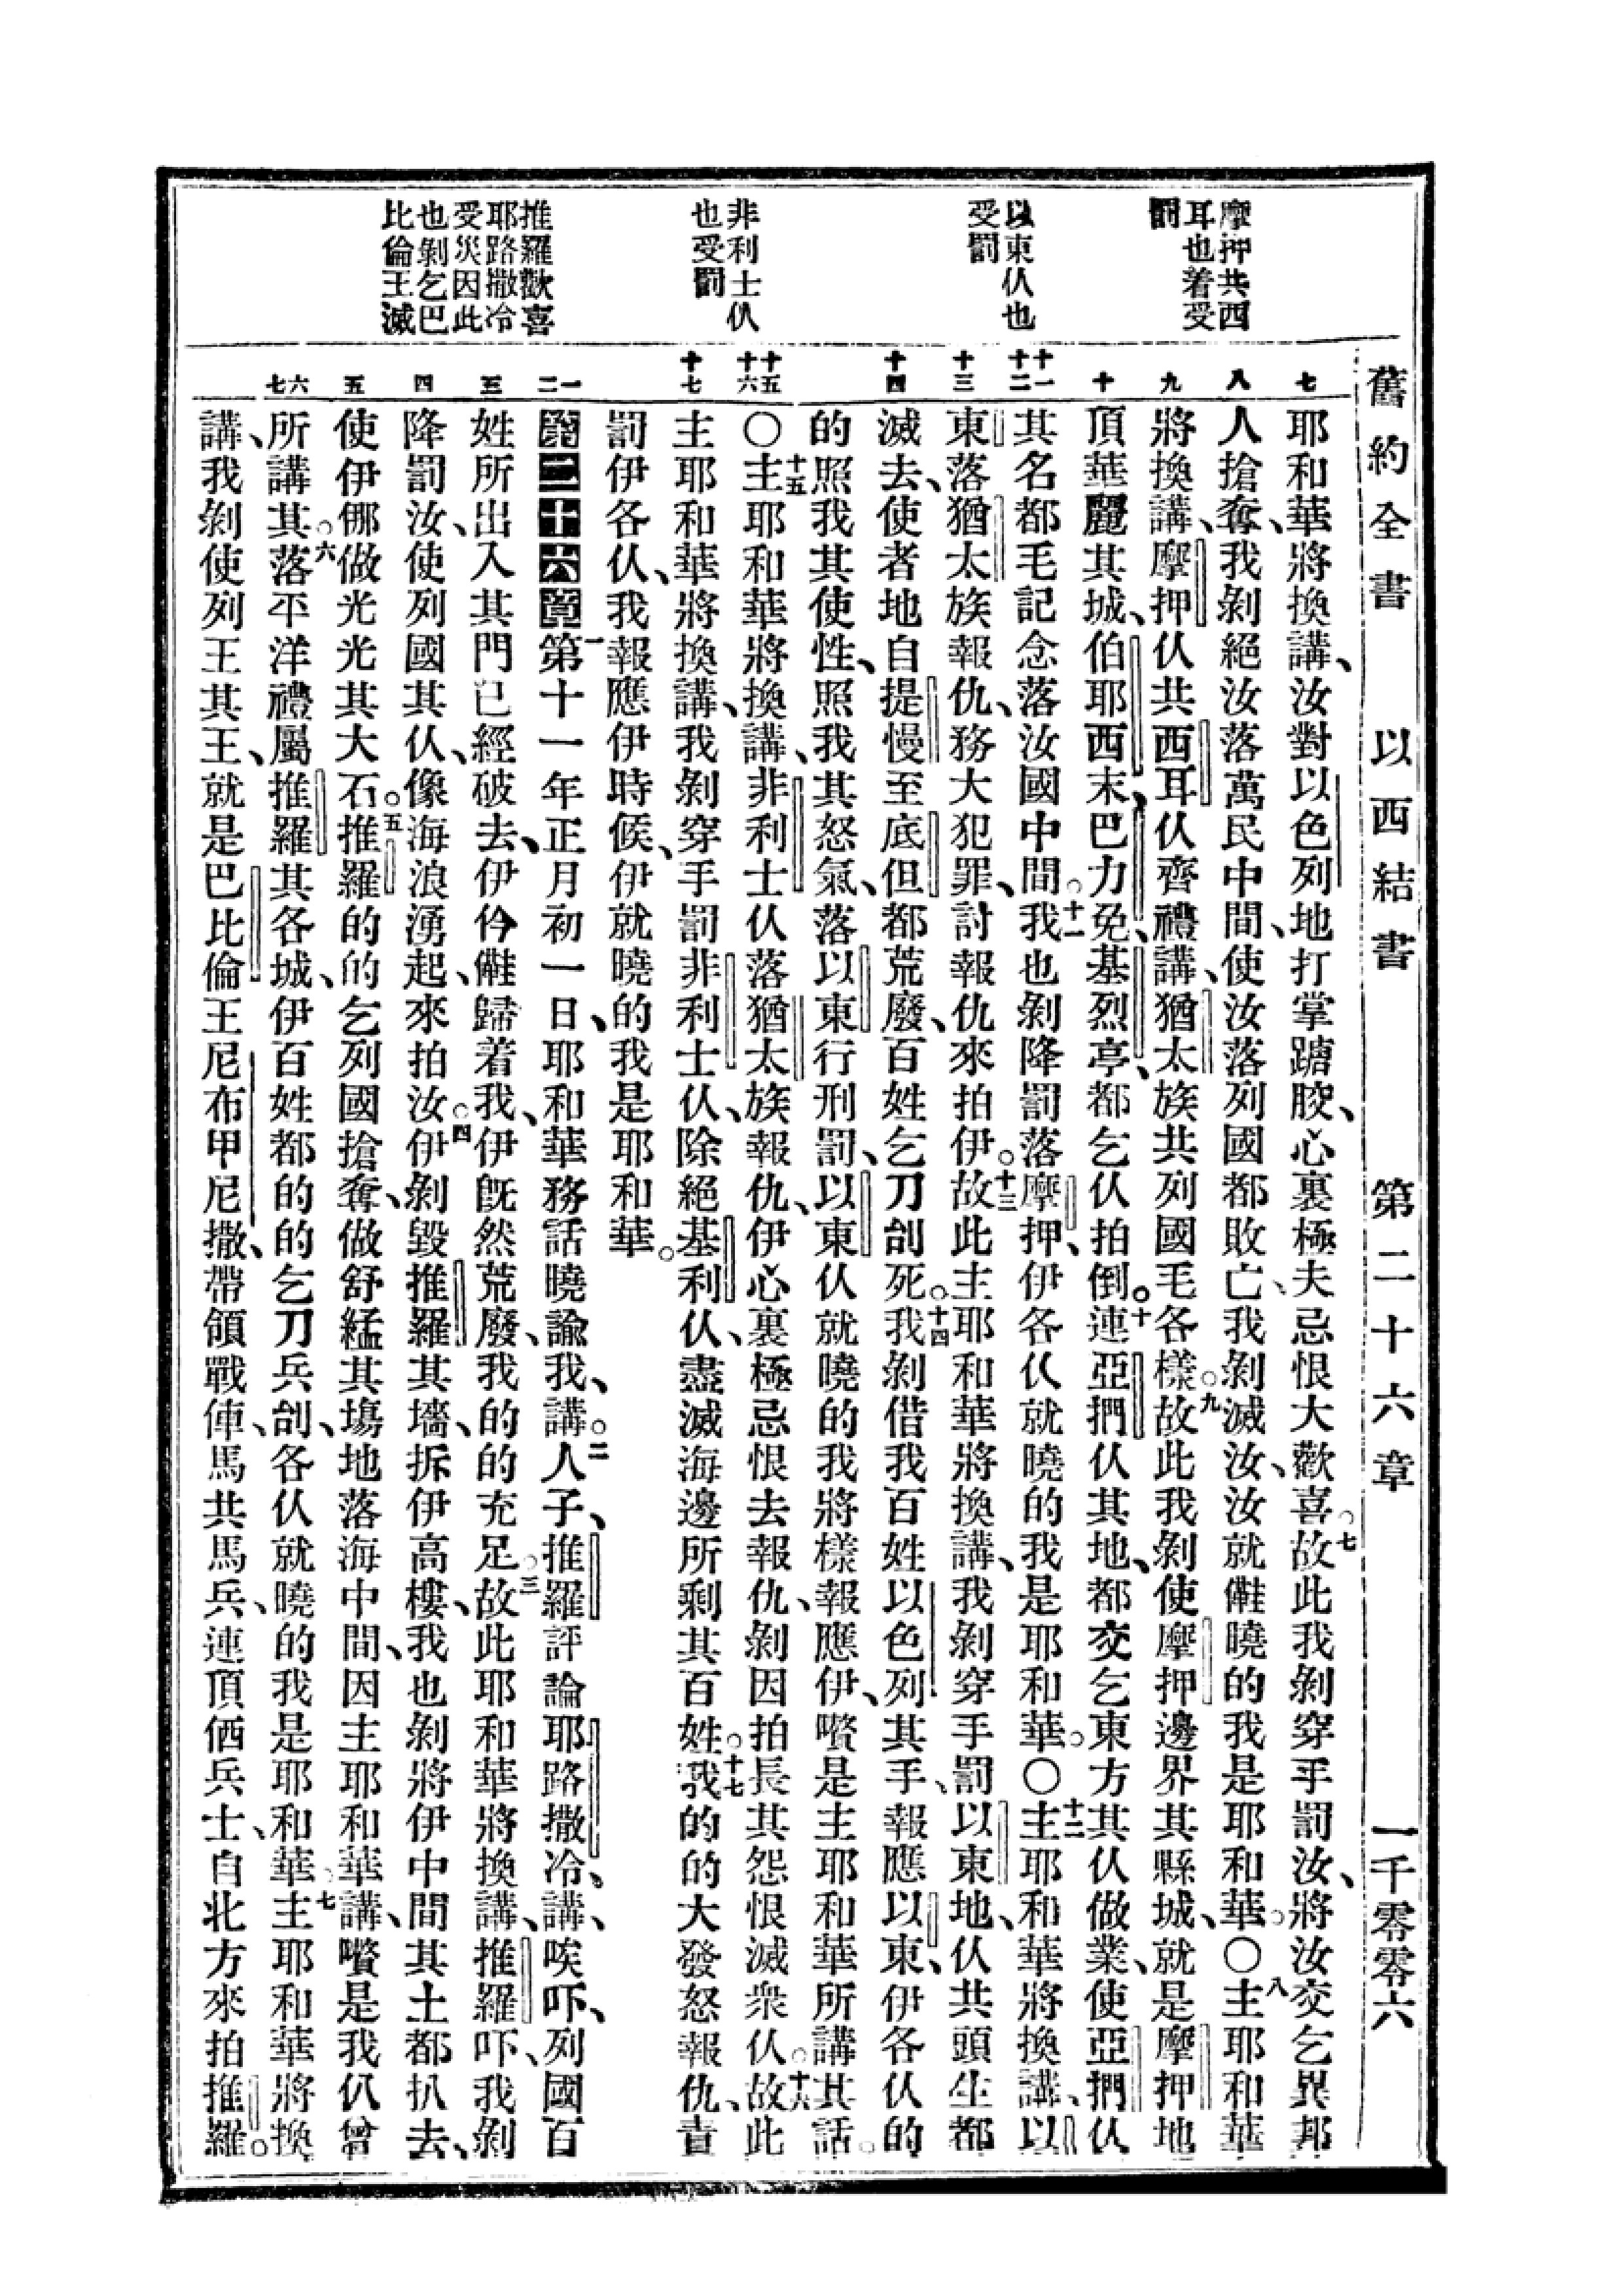 舊約全書 以西結書 第二十六章 一千零零六
摩押共西
耳也着受
罰
以東仈也
受罰
非利士仈
也受罰
推羅歡喜
耶路撒冷
受災因此
也剝乞巴
比倫王滅
七
耶和華將換講、汝對以色列地打掌蹗骹、心裏極夫忌恨大歡喜。七故此我剝穿手罰汝、將汝交乞異邦
八
人搶奪、我剝絕汝落萬民中間、使汝落列國都敗亡、我剝滅汝、汝就𣍐曉的我是耶和華。〇八主耶和華
九
將換講、摩押仈共西耳仈齊禮講、猶太族共列國毛各樣。九故此我剝使摩押邊界其縣城、就是摩押地
十
頂華麗其城、伯耶西末、巴力免、基烈亭、都乞仈拍倒。十連亞捫仈其地、都交乞東方其仈做業、使亞捫仈
十一
十二
其名都毛記念落汝國中間。十一我也剝降罰落摩押、伊各仈就曉的我是耶和華。〇十二主耶和華將換講、以
十三
東落猶太族報仇、務大犯罪、討報仇來拍伊。十三故此主耶和華將換講、我剝穿手罰以東地、仈共頭生都
十四
滅去、使者地自提慢至底但都荒廢、百姓乞刀刣死。十四我剝借我百姓以色列其手、報應以東、伊各仈的
的照我其使性、照我其怒氣、落以東行刑罰、以東仈就曉的我將樣報應伊、嚽是主耶和華所講其話。
十五
十六
〇十五主耶和華將換講、非利士仈落猶太族報仇、伊心裏極忌恨去報仇、剝因拍長其怨恨滅衆仈。十六故此
十七
主耶和華將換講、我剝穿手罰非利士仈、除絕基利仈、盡滅海邊所剩其百姓。十七我的的大發怒報仇、責
罰伊各仈、我報應伊時候、伊就曉的我是耶和華。
一
二
第二十六章 一第十一年正月初一日、耶和華務話曉諭我、講。二人子、推羅評論耶路撒冷、講、唉吓、列國百
三
姓所出入其門已經破去、伊仱𣍐歸着我、伊旣然荒廢、我的的充足。三故此耶和華將換講、推羅吓、我剝
四
降罰汝、使列國其仈、像海浪湧起、來拍汝。四伊剝毀推羅其墻、拆伊高樓、我也剝將伊中間其土都扒去、
五
使伊㑚做光光其大石。五推羅的的乞列國搶奪、做舒緍其塲地落海中間、因主耶和華講、嚽是我仈曾
六
七
所講其。六落平洋禮屬推羅其各城、伊百姓都的的乞刀兵刣、各仈就曉的我是耶和華。七主耶和華將換
講、我剝使列王其王、就是巴比倫王尼布甲尼撒、帶領戰俥、馬共馬兵、連頂𠶧兵士、自北方來拍推羅。